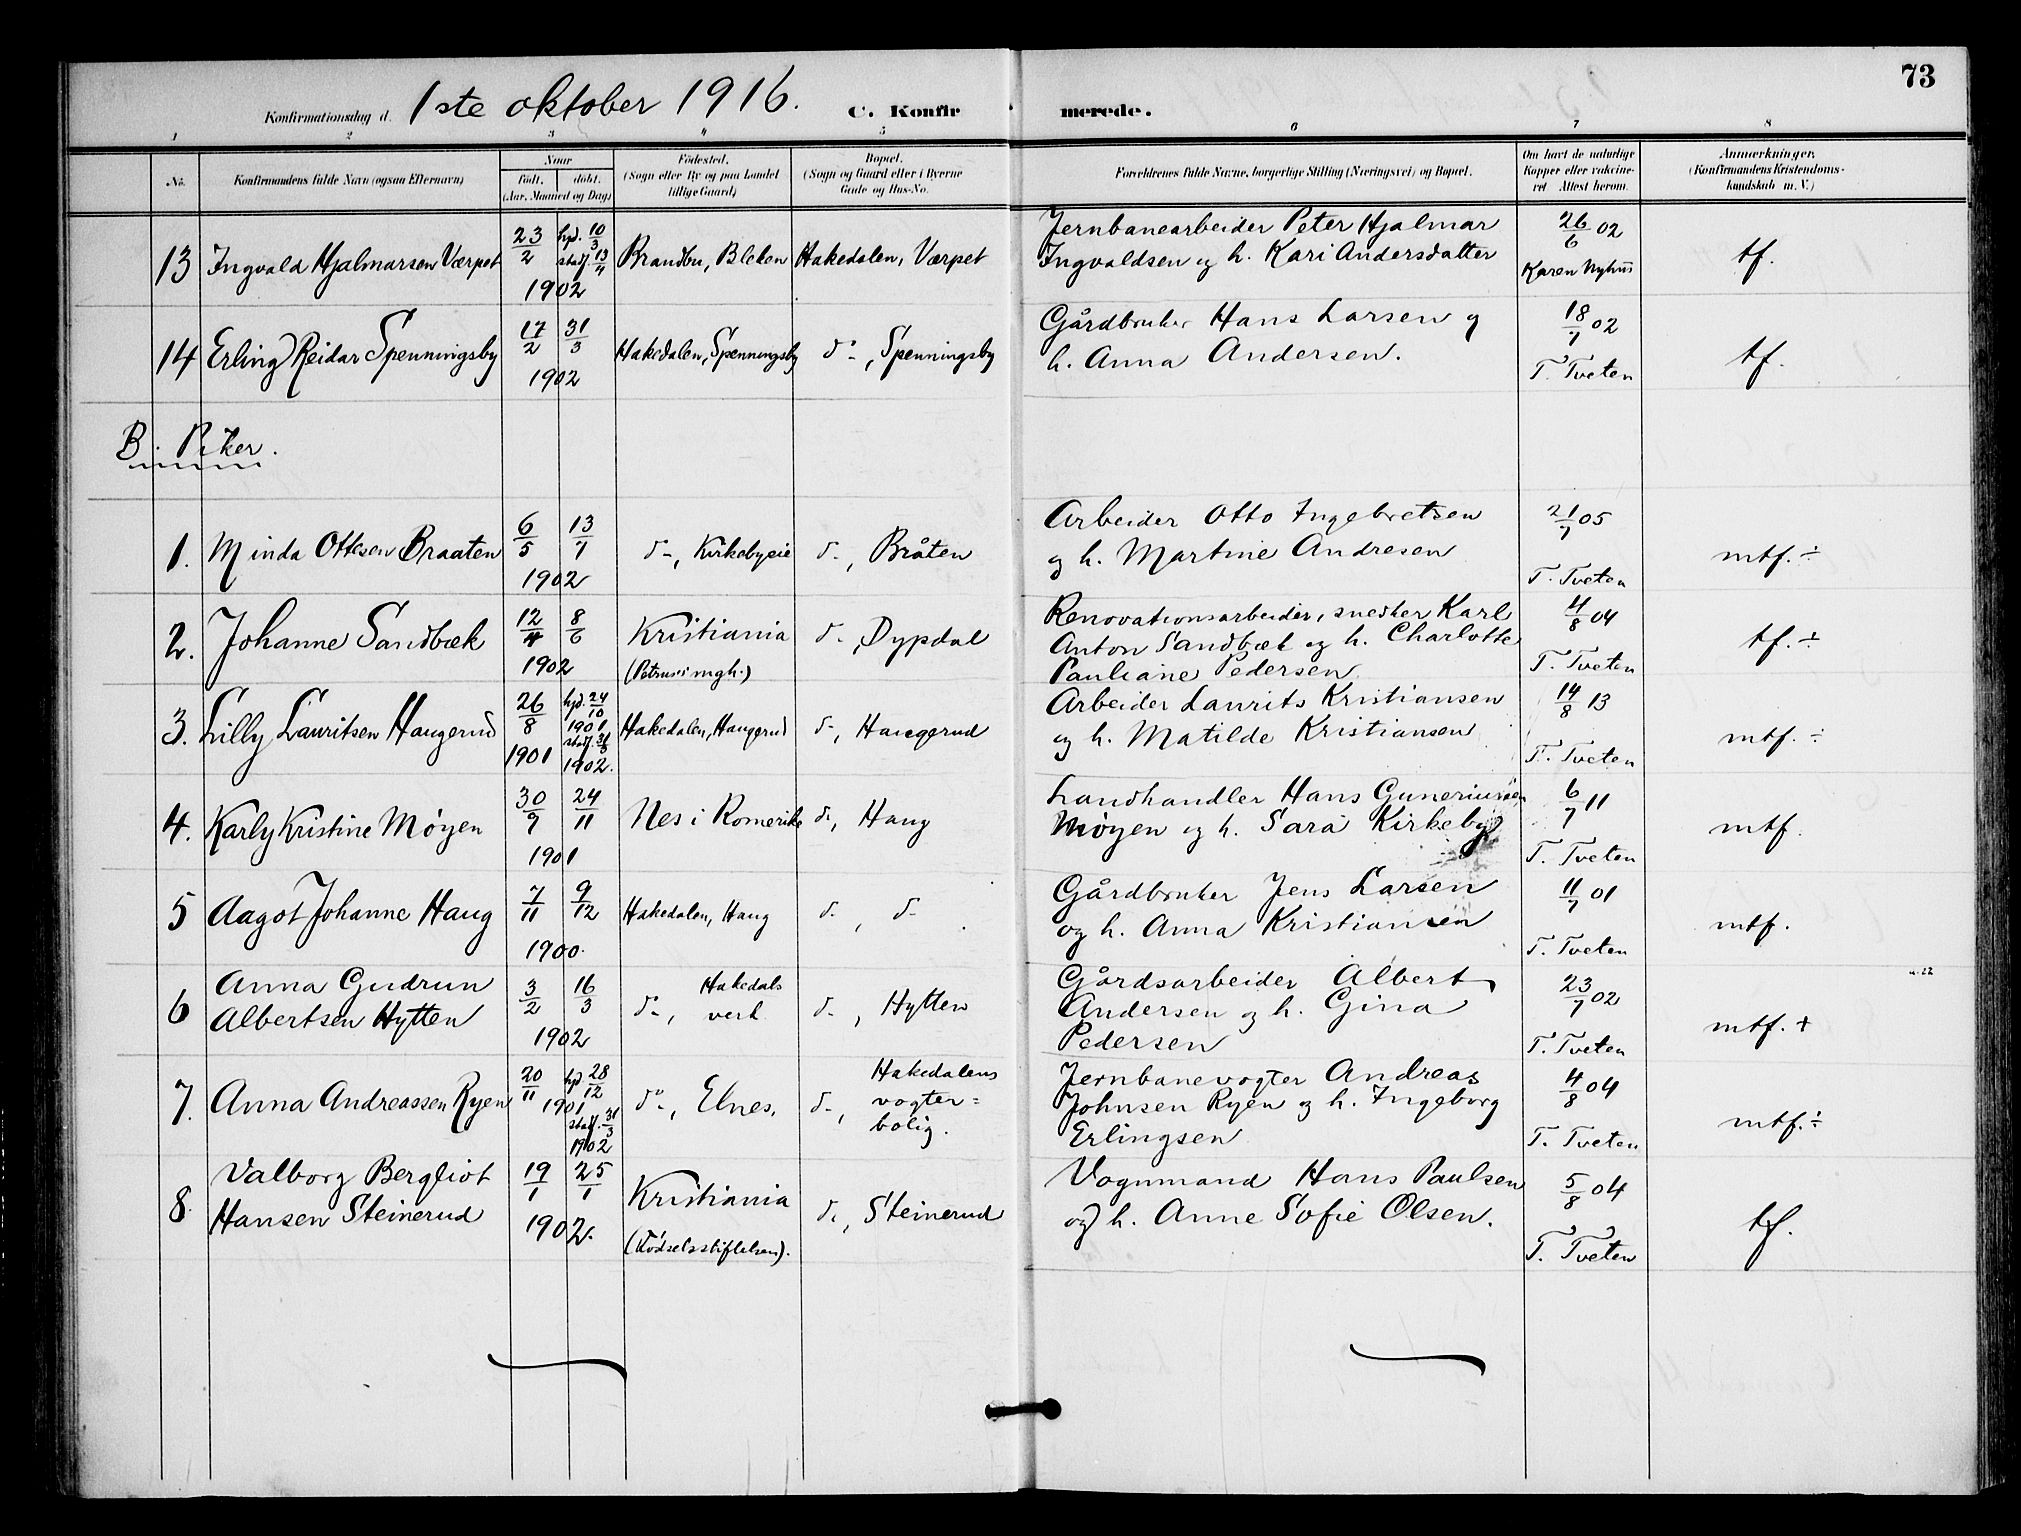 73
Konfirmationsdag d. 1ste oktober 1916. C. Konfir merede.
1 2 3 4 5 6 7 8
No. Konfirmandens fulde Navn (ogsaa Efternavn) Naar født, døbt. (Aar, Maaned og Dag) Fødested. (Sogn eller By og paa Landet tillige Gaard) Bopæl. (Sogn og Gaard eller i Byerne Gade og Hus-No. Forældrenes fulde Navne, borgerlige Stilling (Næringsvei) og Bopæl. Om havt de naturlige Kopper eller vakcineret. Attest herom. Anmærkninger, (Konfirmandens Kristendomskundskab m. V.)
13 Ingvald Hjalmarsen Værpet 23/2 hjd. 10/3 stadf. 13/4 1902 Brandbu, Bleken Hakedalen, Værpet Jernbanearbeider Peter Hjalmar Ingvaldsen og h. Kari Andersdatter 26/6 02 Karen Nyhus tf.
14 Erling Reidar Spenningsby 17/2 31/3 1902 Hakedalen, Spenningsby do-, Spenningsby Gårdbruker Hans Larsen og h. Anna Andersen. 18/7 02 T. Tveten tf.
B. Piker.
1. Minda Ottesen Braaten 6/5 13/7 1902 do-, Kirkebyeie do-, Bråten Arbeider Otto Ingebretsen og h. Martine Andresen 21/7 05 T. Tveten mtf. ÷
2. Johanne Sandbæk 12/4 8/6 1902 Kristiania (Petrus mgh.) do-, Dypdal Renovationsarbeider, snedker Karl Anton Sandbæk og h. Charlotte Pauliane Pedersen 4/8 04 T. Tveten tf. ÷
3. Lilly Lauritsen Haugerud 26/8 1901 hjd. 24/10 1901 stadf. 31/3 1902. Hakedalen, Haugerud do-, Haugerud Arbeider Laurits Kristiansen og h. Matilde Kristiansen 14/8 13 T. Tveten mtf. ÷
4. Karly Kristine Møyen 30/9 24/11 1901 Nes i Romerike do, Haug Landhandler Hans Guneriussen Møyen og h. Sara Kirkeby 6/7 11 T. Tveten mtf.
5 Aagot Johanne Haug 7/11 9/12 1900. Hakedalen, Haug do-, do- Gårdbruker Jens Larsen og h. Anna Kristiansen 11/7 01 T. Tveten mtf.
6 Anna Gudrun Albertsen Hytten 3/2 16/3 1902 do-, Hakedals verk do-, Hytten Gårdsarbeider Albert Andersen og h. Gina Pedersen 23/7 02 T. Tveten mtf. +
7. Anna Andreassen Ryen 20/11 hjd. 28/12 1901 stadf. 31/3 1902 do-, Elnes. do-, Hakedalens vogter= bolig. Jernbanevogter Andreas Johnsen Ryen og h. Ingeborg Erlingsen 4/8 04 T. Tveten mtf. ÷
8. Valborg Bergliot Hansen Steinerud 19/1 25/1 1902. Kristiania (Fødselsstiftelsen). do, Steinerud Vognmand Hans Paulsen og h. Anne Sofie Olsen. 5/8 04 T. Tveten tf.